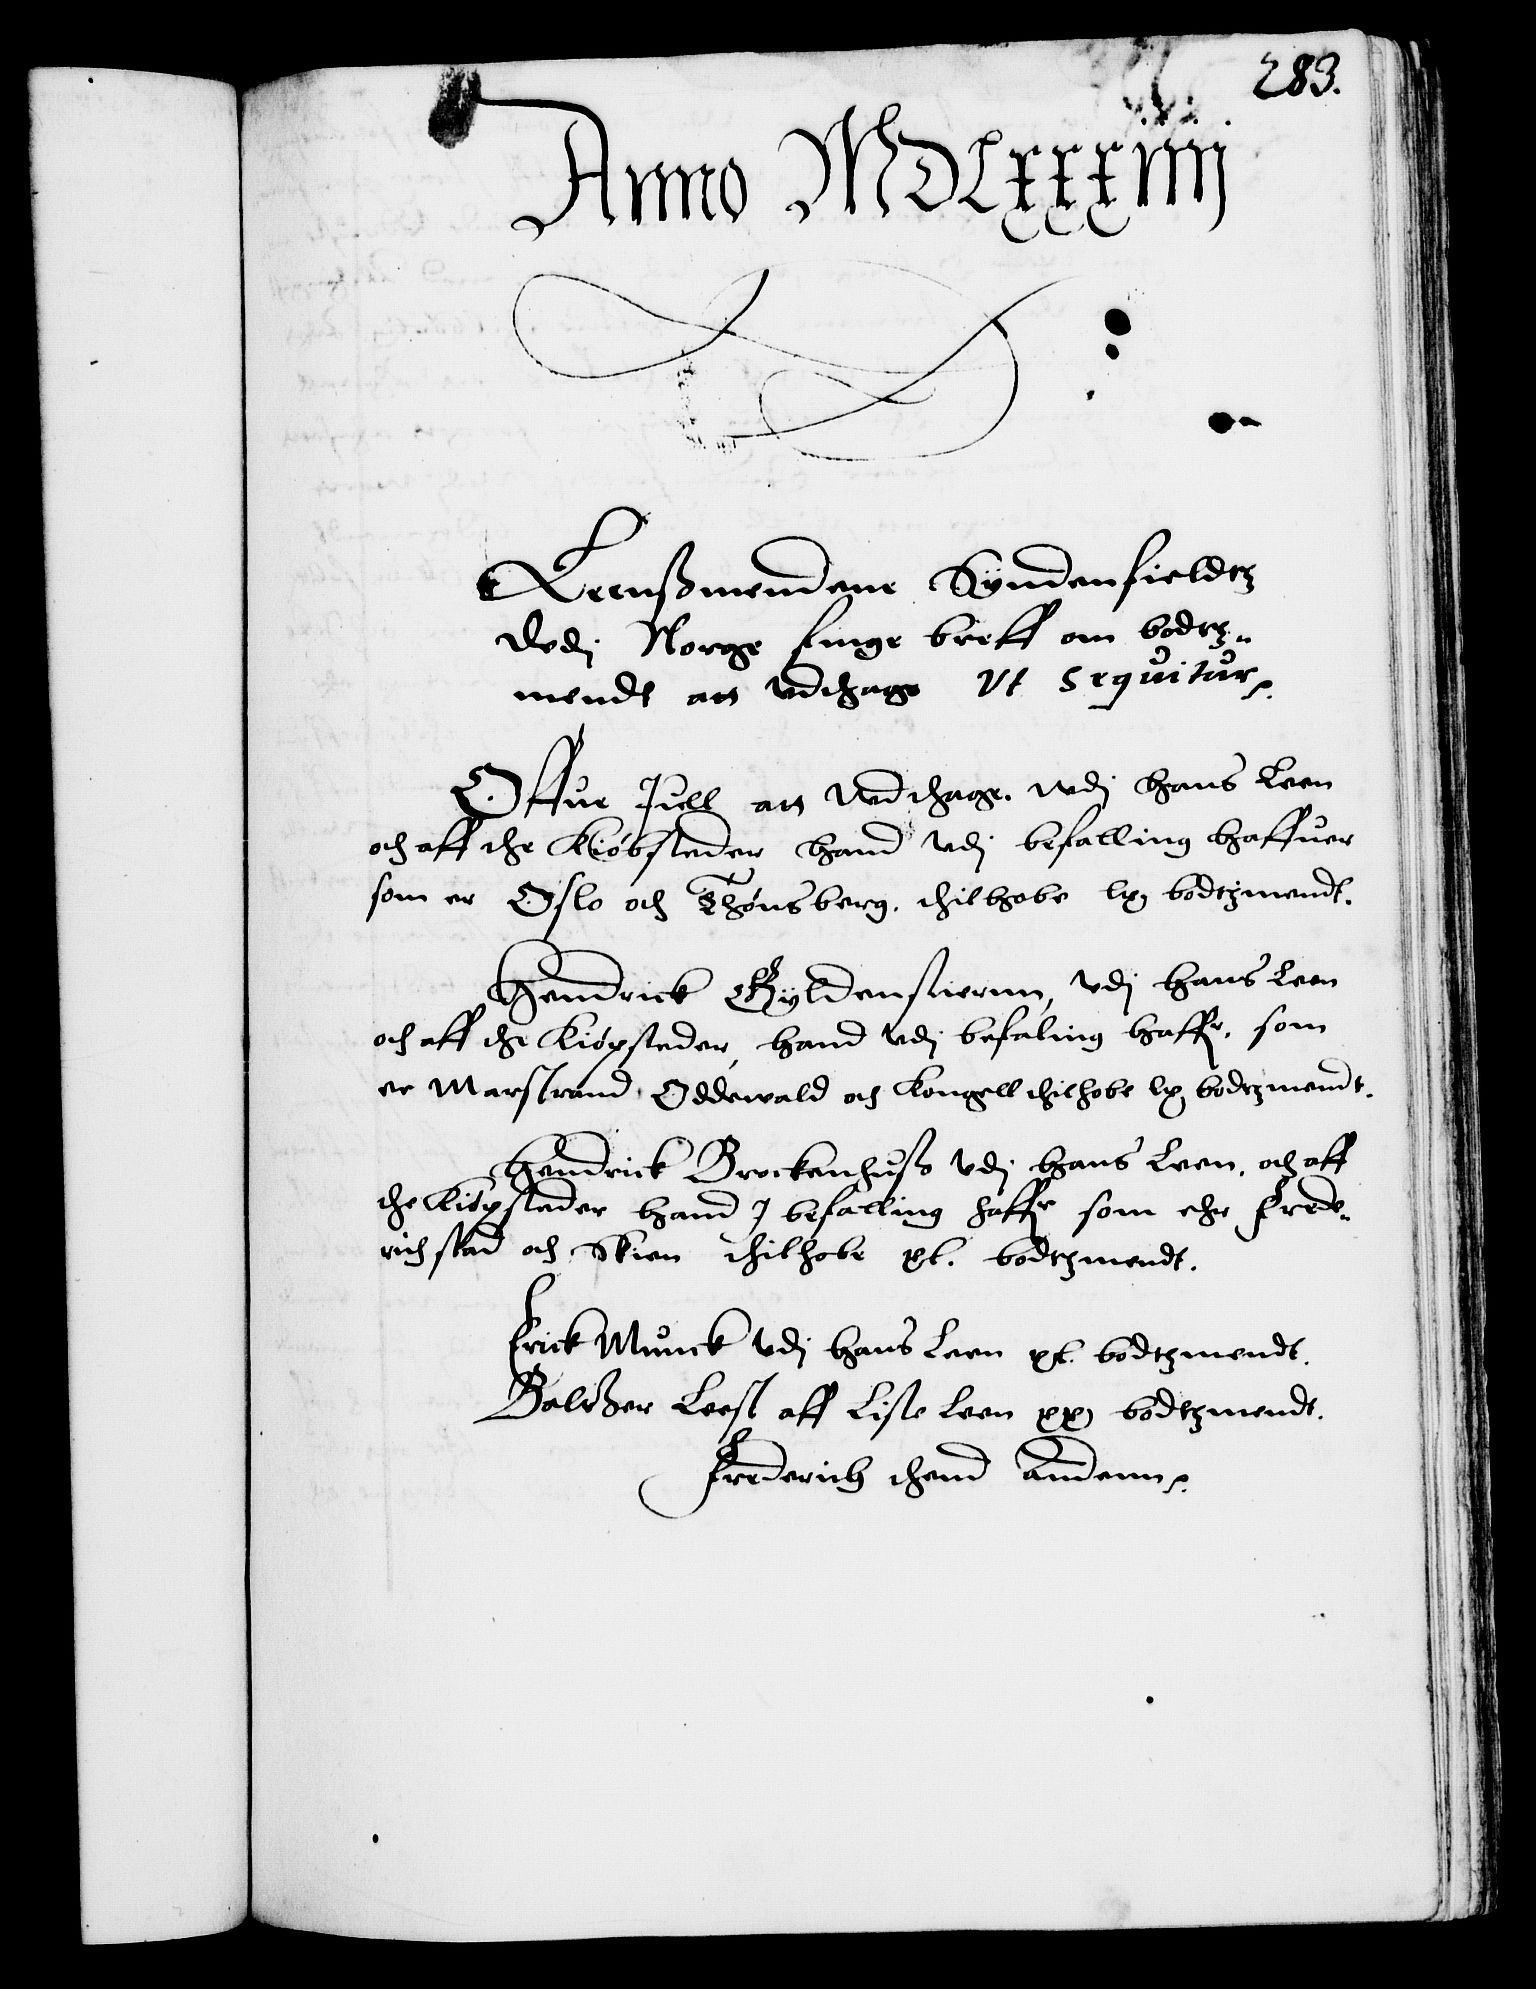 283.
Anno MDLxxxiiij
Leenßmendene Syndenfieldtz
Vdj Norge finge breff om bodtz-
mendt att vdthage Vt Sequitur.
Offue Juell att Vdthage. vdj hans Leen
och aff the Kiøbsteder hand vdj befalling haffuer
som er Oslo och Thønsberg. thilhobe lx bodtzmendt.
Hendrick Gyldenstiernn, vdj hans Leen
och aff the Kiøpsteder, hand vdj befaling haffr. som
er Marstrand Oddewald och Kongell thilhobe lx bodtzmendt.
Hendrick Brockenhuß vdj hans Leen. och aff
the Kiøpsteder hand J befalling haffr som ehr Frede-
richstad och Skien thilhobe xl. bodtzmendt.
Erick Munck vdj hans Leen xl. bodtzmendt.
Baltßer Leest aff Liste Leen xx bodtzmendt.
Frederich thend Andenn.